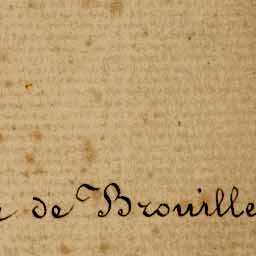 e de Brouille